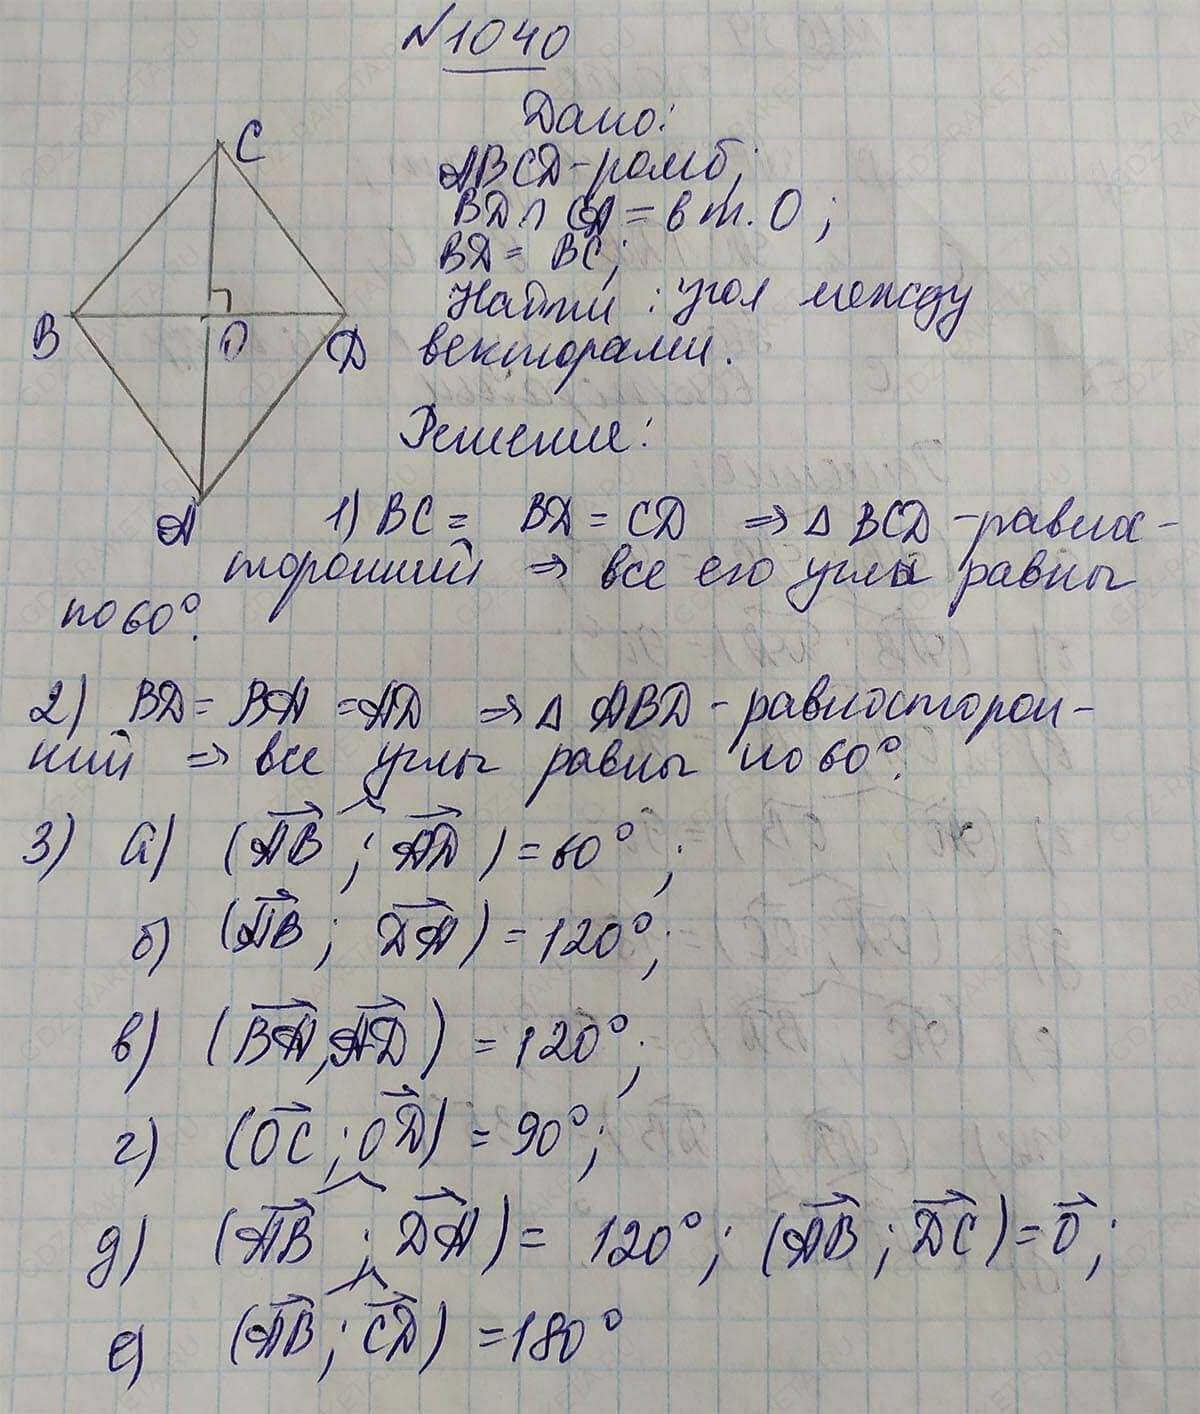 №1040
Дано:
C
ABCD-ромб;
BD∩CA = в т. O;
BD = BC;
Найти: угол между
B O D векторами.
Решение:
A
1) BC = BD = CD ⇒ △BCD-равнос-
торонний ⇒ все его углы равны
по 60°.
2) BD = BA = AD ⇒ △ABD-равносторон-
ний ⇒ все углы равны по 60°.
3) а) (AB⃗ ; AD⃗) = 60°;
б) (AB⃗ ; DA⃗) = 120°;
в) (BA⃗, AD⃗) = 120°;
г) (OC⃗ ; OD⃗) = 90°;
д) (AB⃗ ; DA⃗) = 120°; (AB⃗ ; DC⃗) = 0⃗;
е) (AB⃗ ; CD⃗) = 180°